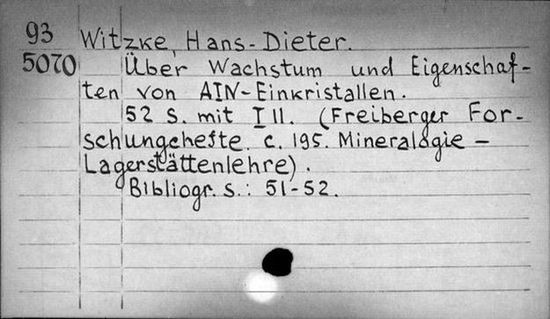 93 Witzke, Hans-Dieter.
5070 Über Wachstum und Eigenschaf-
ten von AIN-Einkristallen.
52 S. mit Ill. (Freiberger For-
schungshefte. C. 195. Mineralogie -
Lagerstättenlehre).
Bibliogr. S.: 51-52.